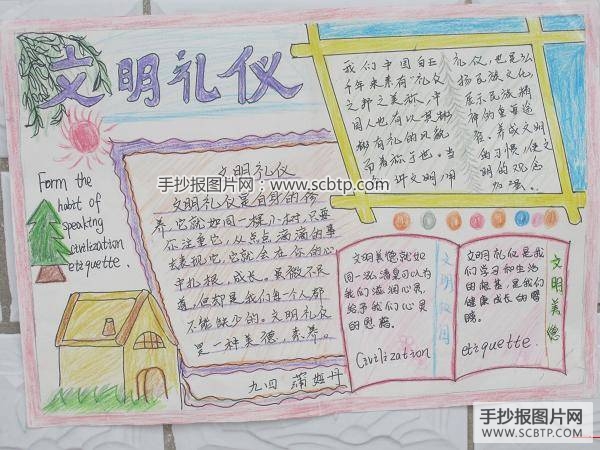 文明礼仪
我们中国自古
千年来素有"礼仪
之邦之美称,中
国人也有以其彬
彬有礼的风貌
而著称于世。
讲文明用
礼仪,也是弘
扬民族文化,
展示民族精
神的重要途
径。养成文明
的习惯,使文
明的观念
Form the
habit of
speaking
civilization
etiquette.
文明礼仪
文明礼仪是自身的修
养,它就如同一棵小树,只要
你注重它,从点点滴滴的事
去表现它,它就会在你的心
中扎根,成长。虽微不足
道,但却是我们每个人都
不能缺少的。文明礼仪
是一种美德,素养。
九四 蒲姬丹
文明美德就如
同一泓清泉可以为
我们滋润心灵,
给予我们心灵
的思路
Civilization
文明校园
文明礼仪是我
们学习和生活
的根基,是我们
健康成长的臂
膀。
etiquette.
文明美德
手抄报图片网:www.scbtp.com
手抄报图片网
WWW.SCBTP.COM